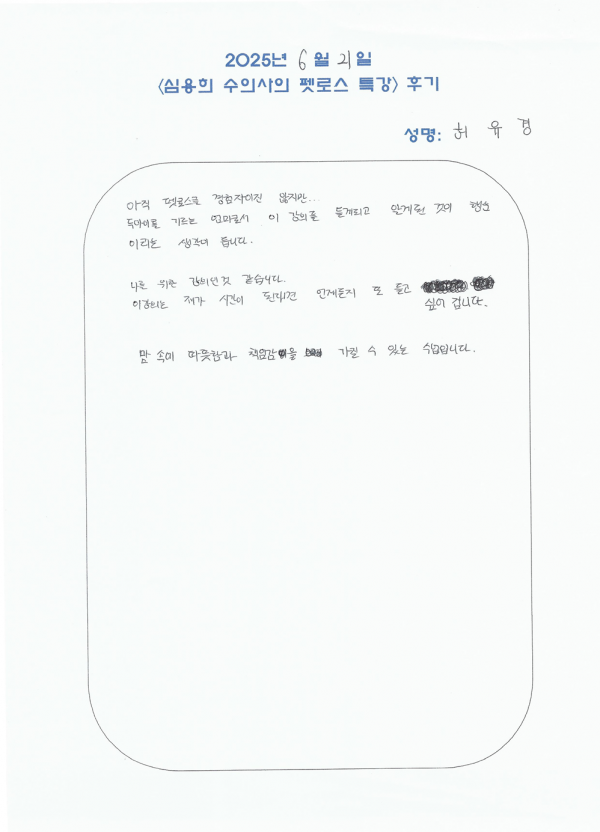 2025년 6월 21일
<심용희 수의사의 펫로스 특강> 후기
성명: 허유경
아직 펫로스를 경험자이진 않지만...
두아이를 기르는 엄마로서 이 강의를 듣게되고 알게된 것이 행운
이라는 생각이 듭니다.
나를 위한 강의인것 같습니다.
이강의는 제가 시간이 된다면 언제든지 또 듣고
싶어 집니다.
맘 속에 따뜻함과 책임감을 가질 수 있는 수업입니다.